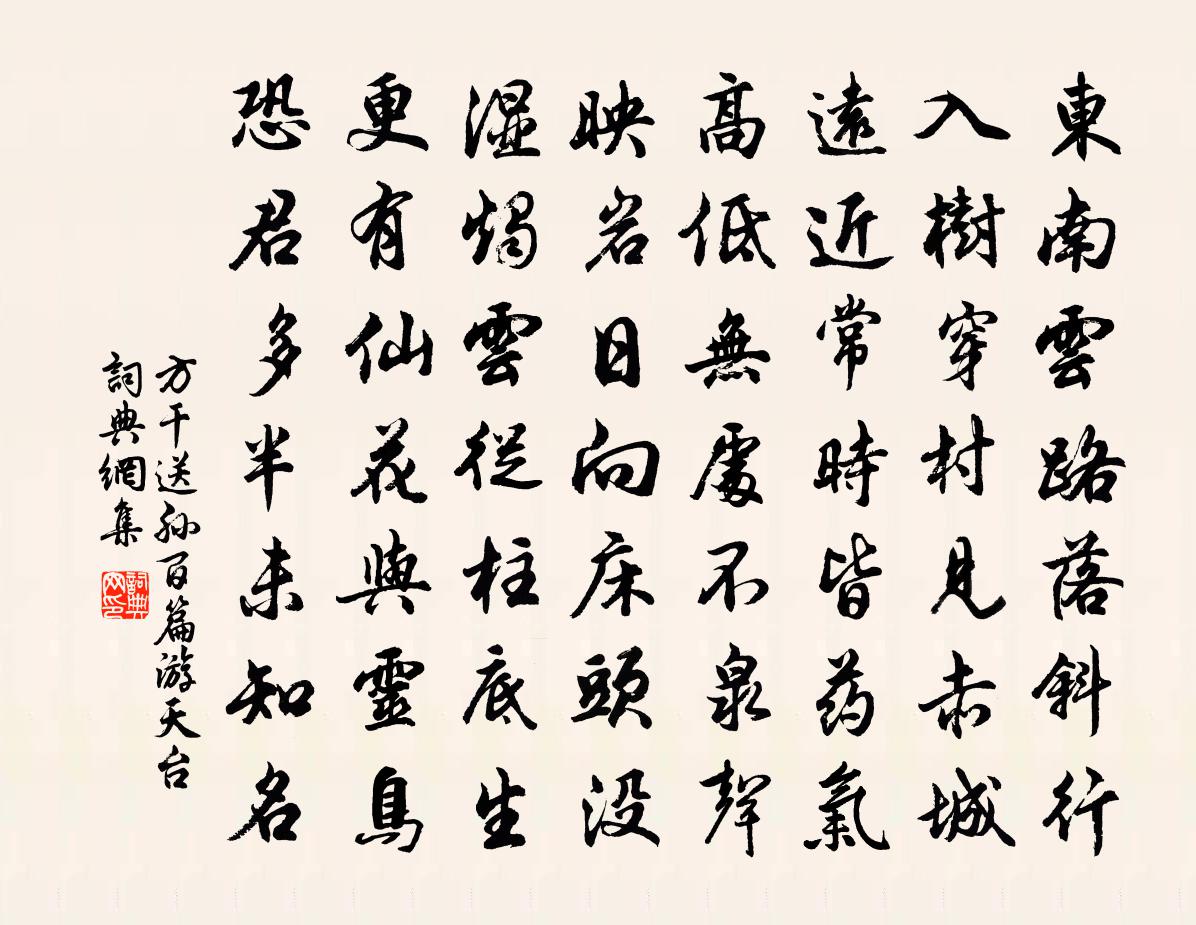 東南雲路落斜行
入樹穿村見赤城
遠近常時皆药氣
高低無處不泉聲
映岩日向床頭没
湿燭雲從柱底生
更有仙花與靈鳥
恐君多半未知名
方干送孙百篇游天台
詞典網集
詞典网印